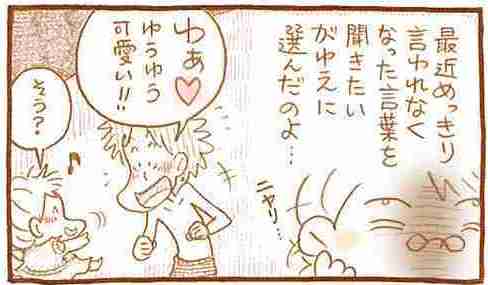 最近めっきり
言われなく
なった言葉を
聞きたい
がゆえに
選んだのよ…
ニヤリ…
わぁ♡
ゆうゆう
可愛い!!
そう?
♪